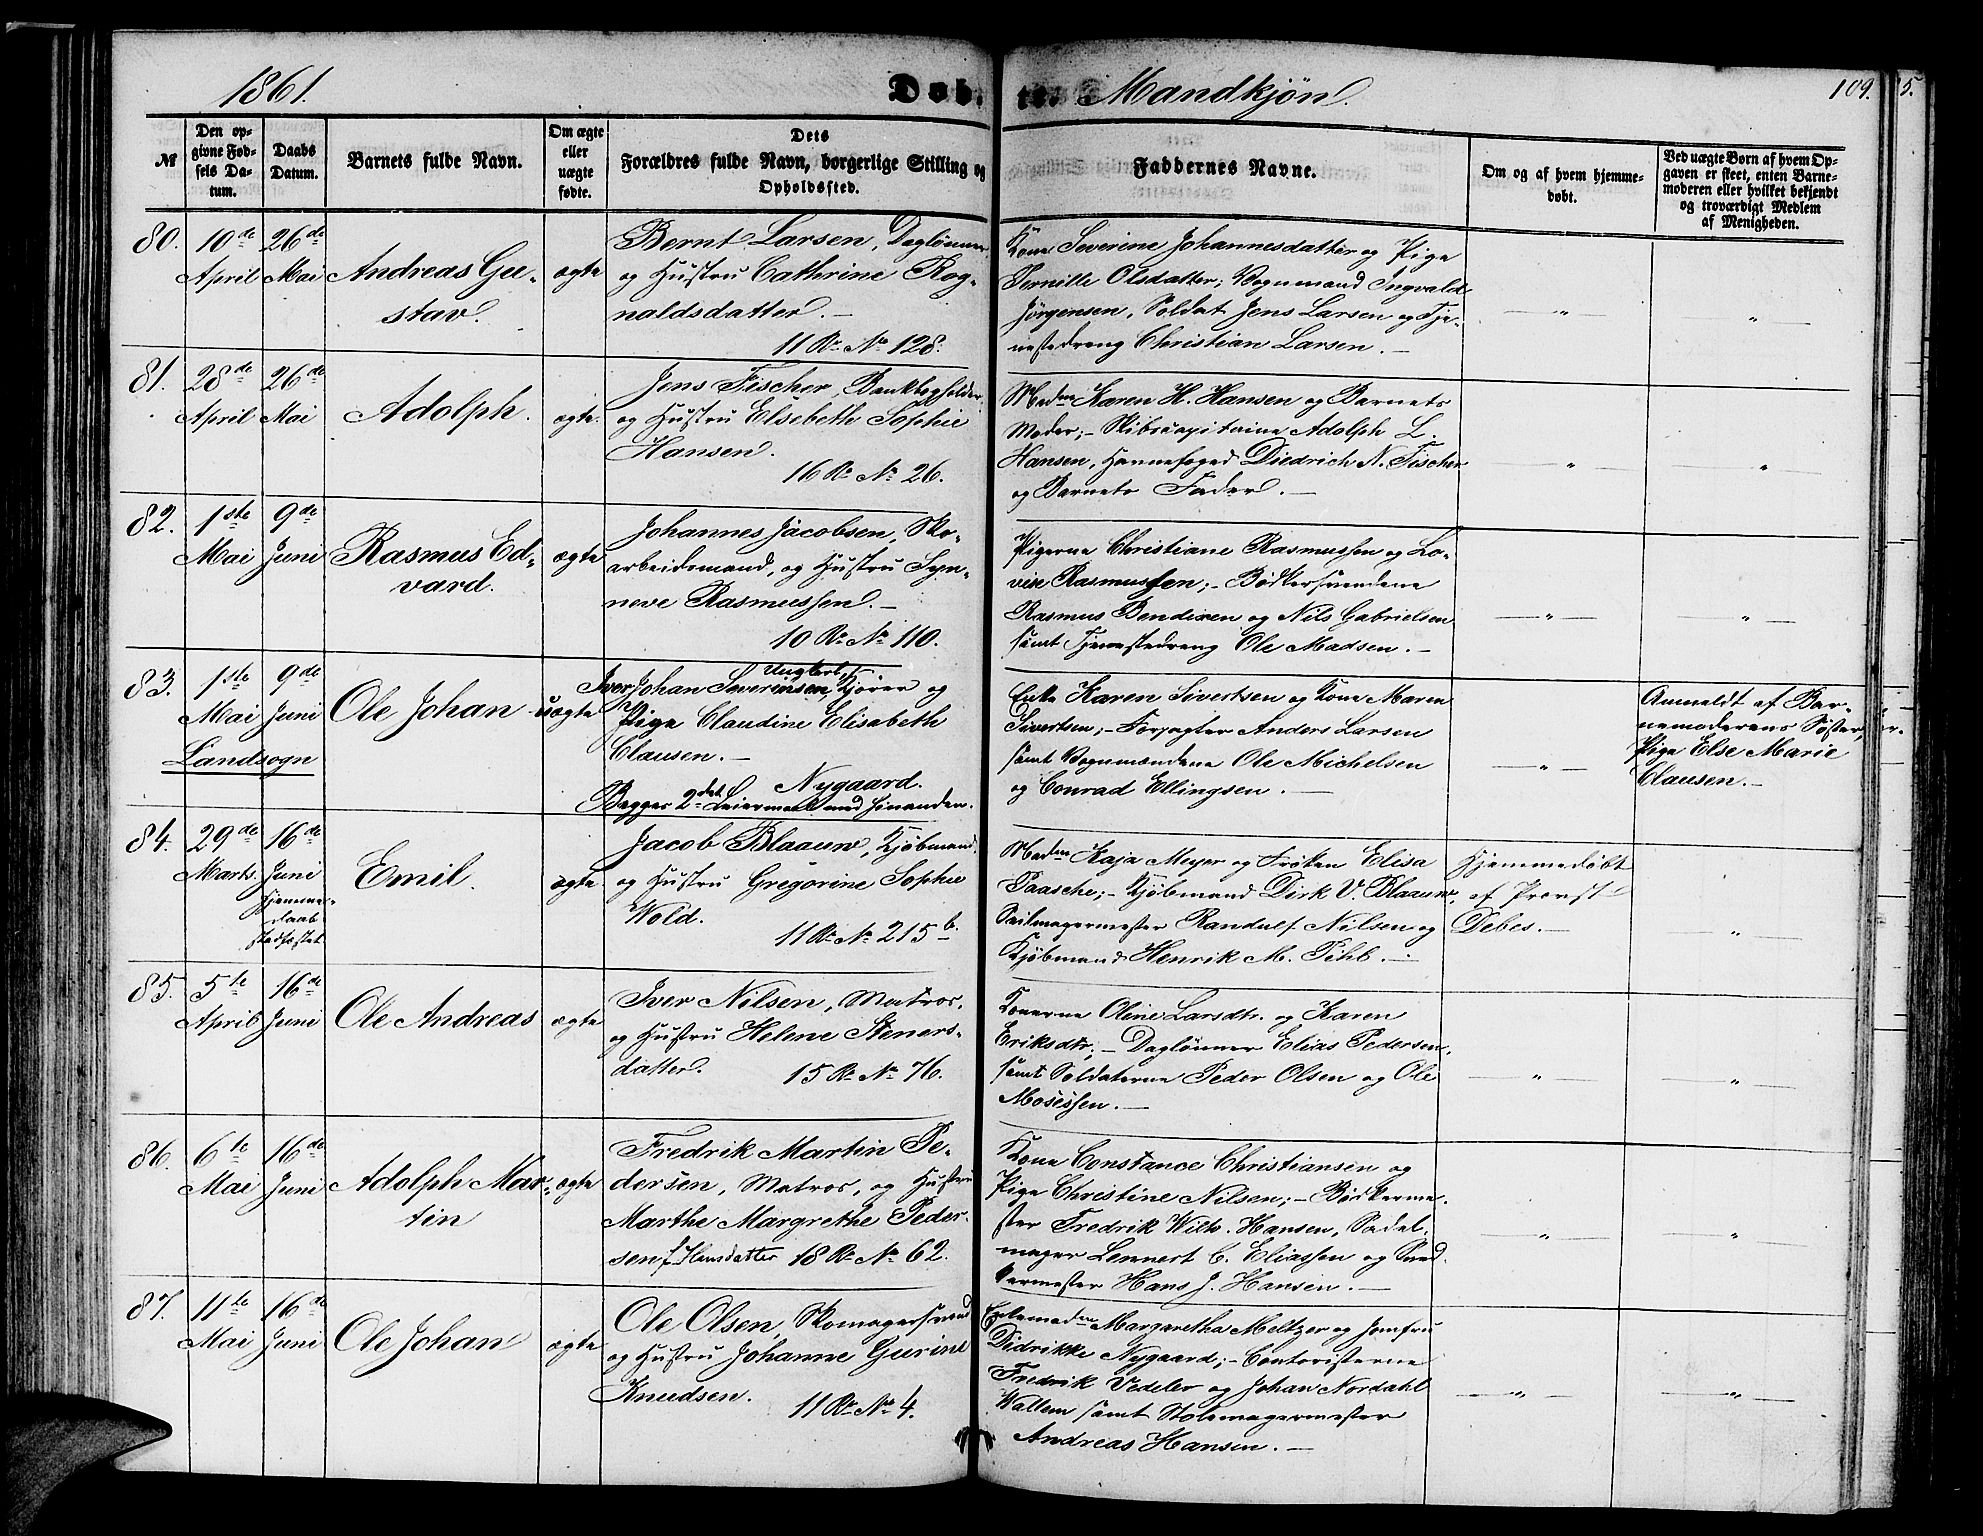 1861.
Døb-
te. Mandkjøn.
109.
5.
№
Den op-
givne Fød-
sels Da-
tum.
Daabs
Datum.
Barnets fulde Navn.
Om ægte
eller
uægte
fødte.
Dets
Forældres fulde Navn, borgerlige Stilling og
Opholdssted.
Faddernes Navne.
Om og af hvem hjemme-
døbt.
Ved uægte Børn af hvem Op-
gaven er skeet, enten Barne-
moderen eller hvilket bekjendt
og troværdigt Medlem
af Menigheden.
80.
10de
April
26de
Mai
Andreas Gu-
stav.
ægte
Bernt Larsen, Daglønner
og Hustru Cathrine Rog-
naldsdatter. -
11 R. No 128.
Kone Severine Johannesdatter og Pige
Pernille Olsdatter; Vognmand Ingvald
Jørgensen, Soldat Jens Larsen og Tje-
nestedreng Christian Larsen. -
81.
28de
April
26de
Mai
Adolph.
ægte.
Jens Fischer, Bankbogholder
og Hustru Elsebeth Sophie
Hansen.
16 R. No 26.
Madm Karen H. Hansen og Barnets
Moder; - Skibscapitaine Adolph L.
Hansen, Havnefoged Diedrich N. Fischer
og Barnets Fader. -
82.
1ste
Mai
9de
Juni
Rasmus Ed-
vard.
ægte
Johannes Jacobsen, Sko-
arbeidsmand, og Hustru Syn-
neve Rasmussen. -
10 R. No 110.
Pigerne Christiane Rasmussen og Lo-
vise Rasmussen; - Bødkersvendene
Rasmus Bendixen og Nils Gabrielsen
samt Tjenestedreng Ole Madsen. -
83.
1ste
Mai
9de
Juni
Landsogn
Ole Johan
uægte
Ungkarl
Iver Johan Severinsen, Kjører og
Pige Claudine Elisabeth
Clausen. -
Nygaard.
Begges 2det Leiermaal med hinanden.
Enke Karen Sivertsen og Kone Maren
Sivertsen; - Forpagter Anders Larsen
samt Vognmændene Ole Michelsen
og Conrad Ellingsen. -
Anmeldt af Bar-
nemoderens Søster,
Pige Else Marie
Clausen. -
84.
29de
Marts.
16de
Juni
Hjemme-
daab
stadfæstet.
Emil.
ægte
Jacob Blaauw, Kjøbmand,
og Hustru Gregorine Sophie
Wold.
11 R. No 215 b.
Madm Kaja Meyer og Frøken Elisa
Paasche; - Kjøbmand Dirk V. Blaauw,
Seilmagermester Randulf Nilsen og
Kjøbmand Henrik M. Pihl. -
Hjemmedøbt
af Provst
Debes. -
85.
5te
April
16de
Juni
Ole Andreas
ægte
Iver Nilsen, Matros,
og Hustru Helene Steners-
datter.
15 R. No 76.
Konerne Oline Larsdtr. og Karen
Eriksdtr; - Daglønner Elias Pedersen,
samt Soldaterne Peder Olsen og Ole
Mosessen. -
86.
6te
Mai
16de
Juni
Adolph Mar-
tin
ægte
Fredrik Martin Pe-
dersen, Matros, og Hustru
Marthe Margrethe Peder-
sen f. Hansdatter 18 R. No 62.
Kone Constance Christiansen og
Pige Christine Nilsen; - Bødkerme-
ster Fredrik Wilh. Hansen, Sadel-
mager Lennert C. Eliassen og Sned-
kermester Hans J. Hansen. -
87.
11te
Mai
16de
Juni
Ole Johan
ægte
Ole Olsen, Skomagersvend
og Hustru Johanne Gurine
Knudsen.
11 R. No 4.
Enkemadm Margaretha Meltzer og Jomfru
Didrikke Nygaard; - Contoristerne
Fredrik Vedeler og Johan Nordahl
Wallem samt Stolemagermester
Andreas Hansen. -